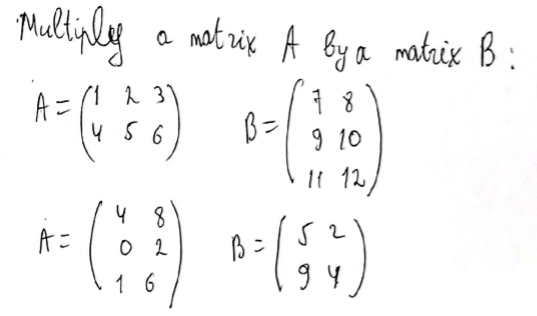 Multiply a matrix A by a matrix B:
A = (1 2 3
4 5 6)
B = (7 8
9 10
11 12)
A = (4 8
0 2
1 6)
B = (5 2
9 4)